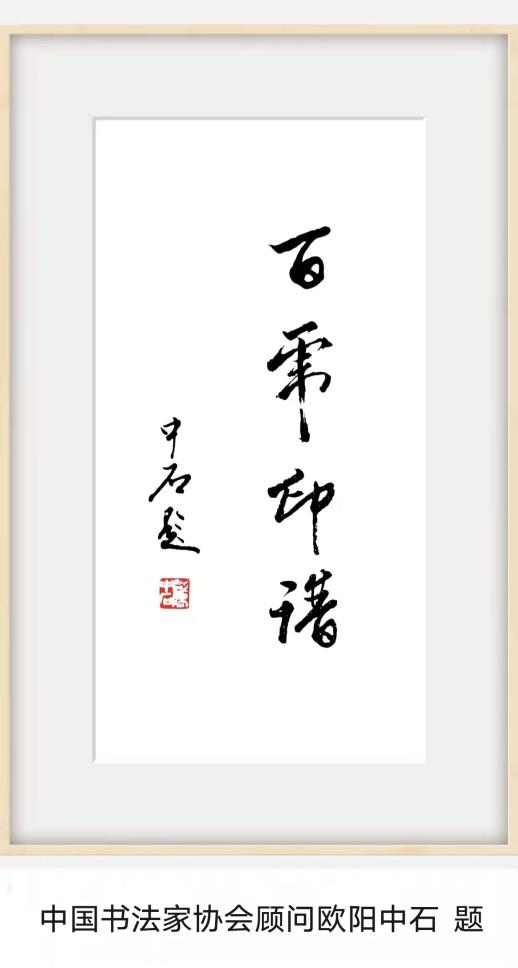 百虎印谱
中石题
中国书法家协会顾问欧阳中石 题